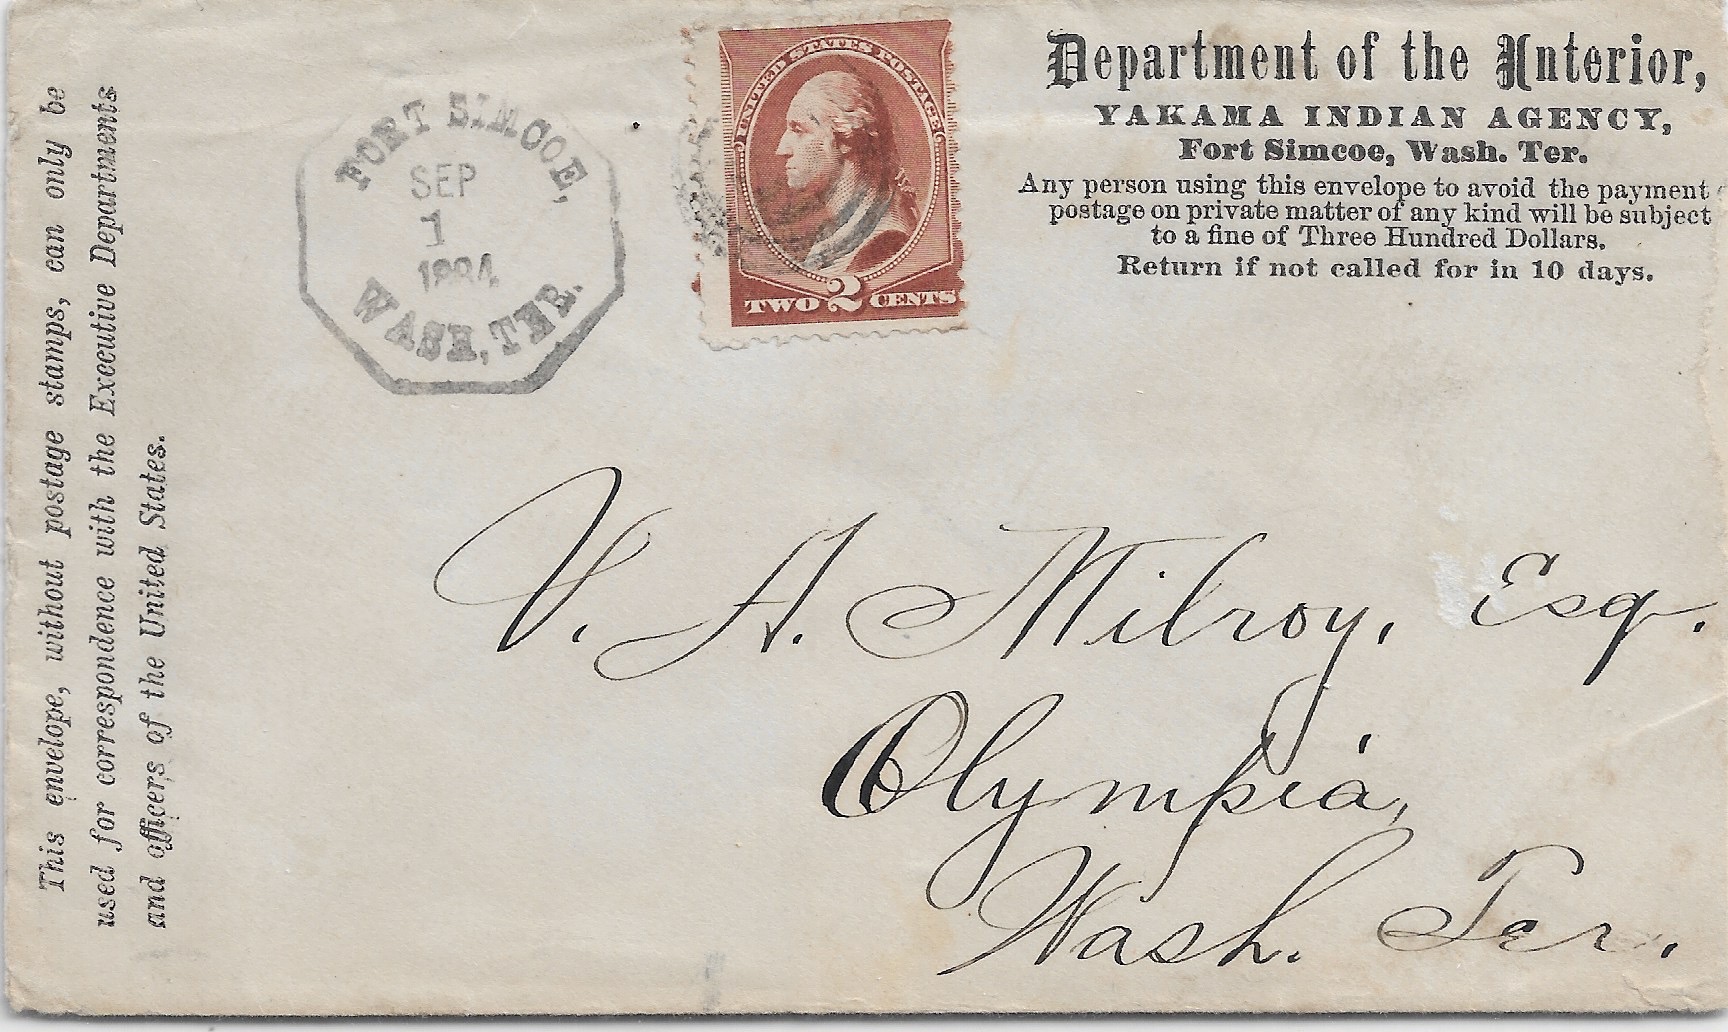 This envelope, without postage stamps, can only be
used for correspondence with the Executive Departments
and officers of the United States.
FORT SIMCOE,
SEP
1
1884
WASH, TER.
UNITED STATES POSTAGE
TWO 2 CENTS
Department of the Interior,
YAKAMA INDIAN AGENCY,
Fort Simcoe, Wash. Ter.
Any person using this envelope to avoid the payment
postage on private matter of any kind will be subject
to a fine of Three Hundred Dollars.
Return if not called for in 10 days.
V. A. Milroy, Esq.
Olympia,
Wash. Ter.